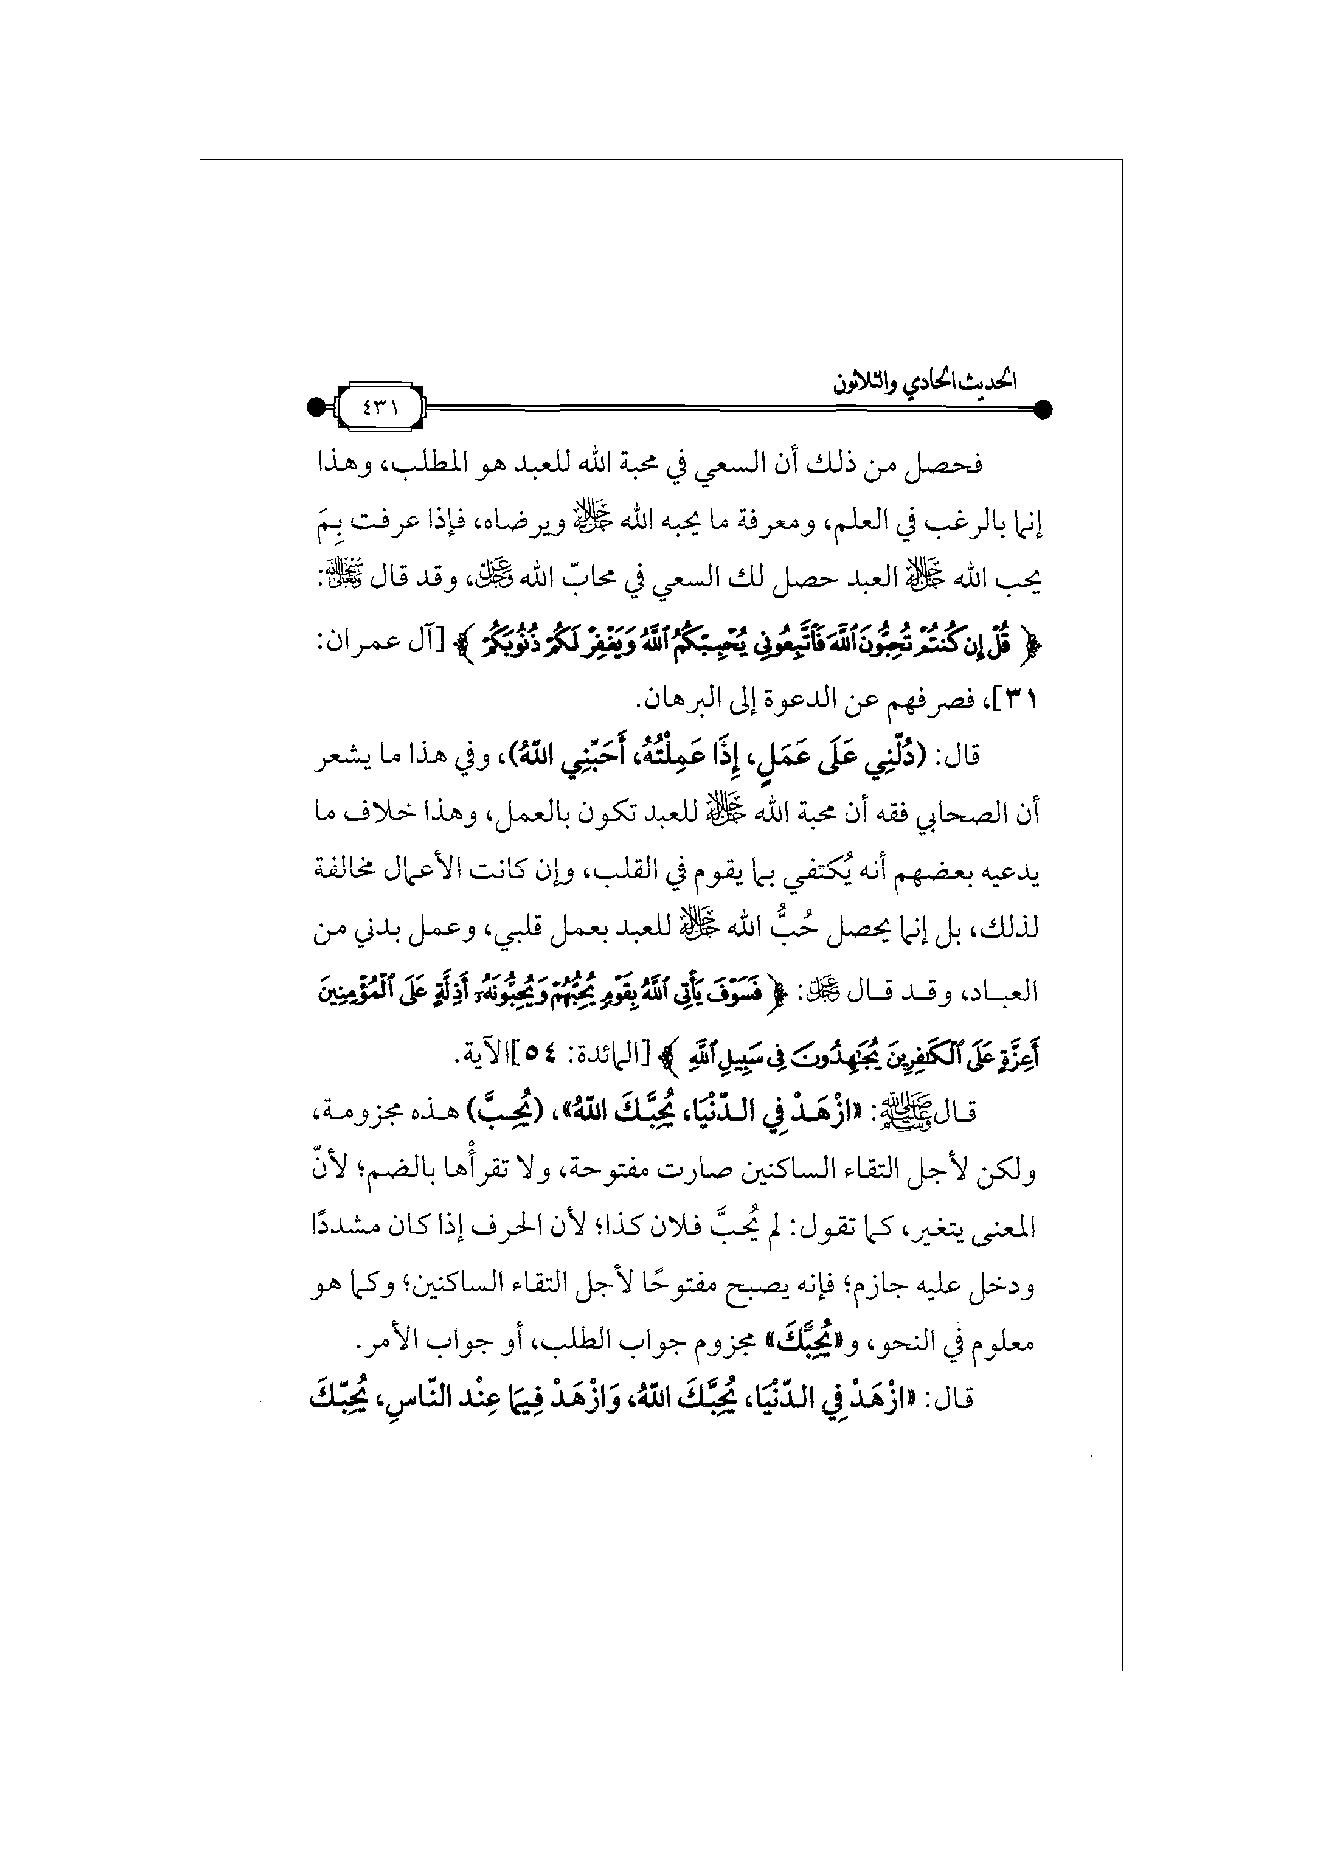 الحديث الحادي والثلاثون
٤٣١
فحصل من ذلك أن السعي في محبة الله للعبد هو المطلب، وهذا
إنما بالرغب في العلم، ومعرفة ما يحبه الله ﷻ ويرضاه، فإذا عرفت بِمَ
يحب الله ﷻ العبد حصل لك السعي في محابّ الله، وقد قال:
﴿ قُلْ إِن كُنتُمْ تُحِبُّونَ ٱللَّهَ فَٱتَّبِعُونِى يُحْبِبْكُمُ ٱللَّهُ وَيَغْفِرْ لَكُمْ ذُنُوبَكُمْ ﴾ [آل عمران:
٣١]، فصرفهم عن الدعوة إلى البرهان.
قال: (دُلَّنِي عَلَى عَمَلٍ، إِذَا عَمِلْتُهُ، أَحَبَّنِي اللهُ)، وفي هذا ما يشعر
أن الصحابي فقه أن محبة الله ﷻ للعبد تكون بالعمل، وهذا خلاف ما
يدعيه بعضهم أنه يُكتفي بما يقوم في القلب، وإن كانت الأعمال مخالفة
لذلك، بل إنما يحصل حُبُّ الله ﷻ للعبد بعمل قلبي، وعمل بدني من
العباد، وقد قال ﷻ: ﴿ فَسَوْفَ يَأْتِى ٱللَّهُ بِقَوْمٍ يُحِبُّهُمْ وَيُحِبُّونَهُۥٓ أَذِلَّةٍ عَلَى ٱلْمُؤْمِنِينَ
أَعِزَّةٍ عَلَى ٱلْكَٰفِرِينَ يُجَٰهِدُونَ فِى سَبِيلِ ٱللَّهِ ﴾ [المائدة: ٥٤]الآية.
قال ﷺ: «ازْهَدْ فِي الدُّنْيَا، يُحِبَّكَ اللهُ»، (يُحِبَّ) هذه مجزومة،
ولكن لأجل التقاء الساكنين صارت مفتوحة، ولا تقرأُها بالضم؛ لأنّ
المعنى يتغير، كما تقول: لم يُحبَّ فلان كذا؛ لأن الحرف إذا كان مشددًا
ودخل عليه جازم؛ فإنه يصبح مفتوحًا لأجل التقاء الساكنين؛ وكما هو
معلوم في النحو، و«يُحِبَّكَ» مجزوم جواب الطلب، أو جواب الأمر.
قال: «ازْهَدْ فِي الدُّنْيَا، يُحِبَّكَ اللهُ، وَازْهَدْ فِيمَا عِنْدَ النَّاسِ، يُحِبَّكَ